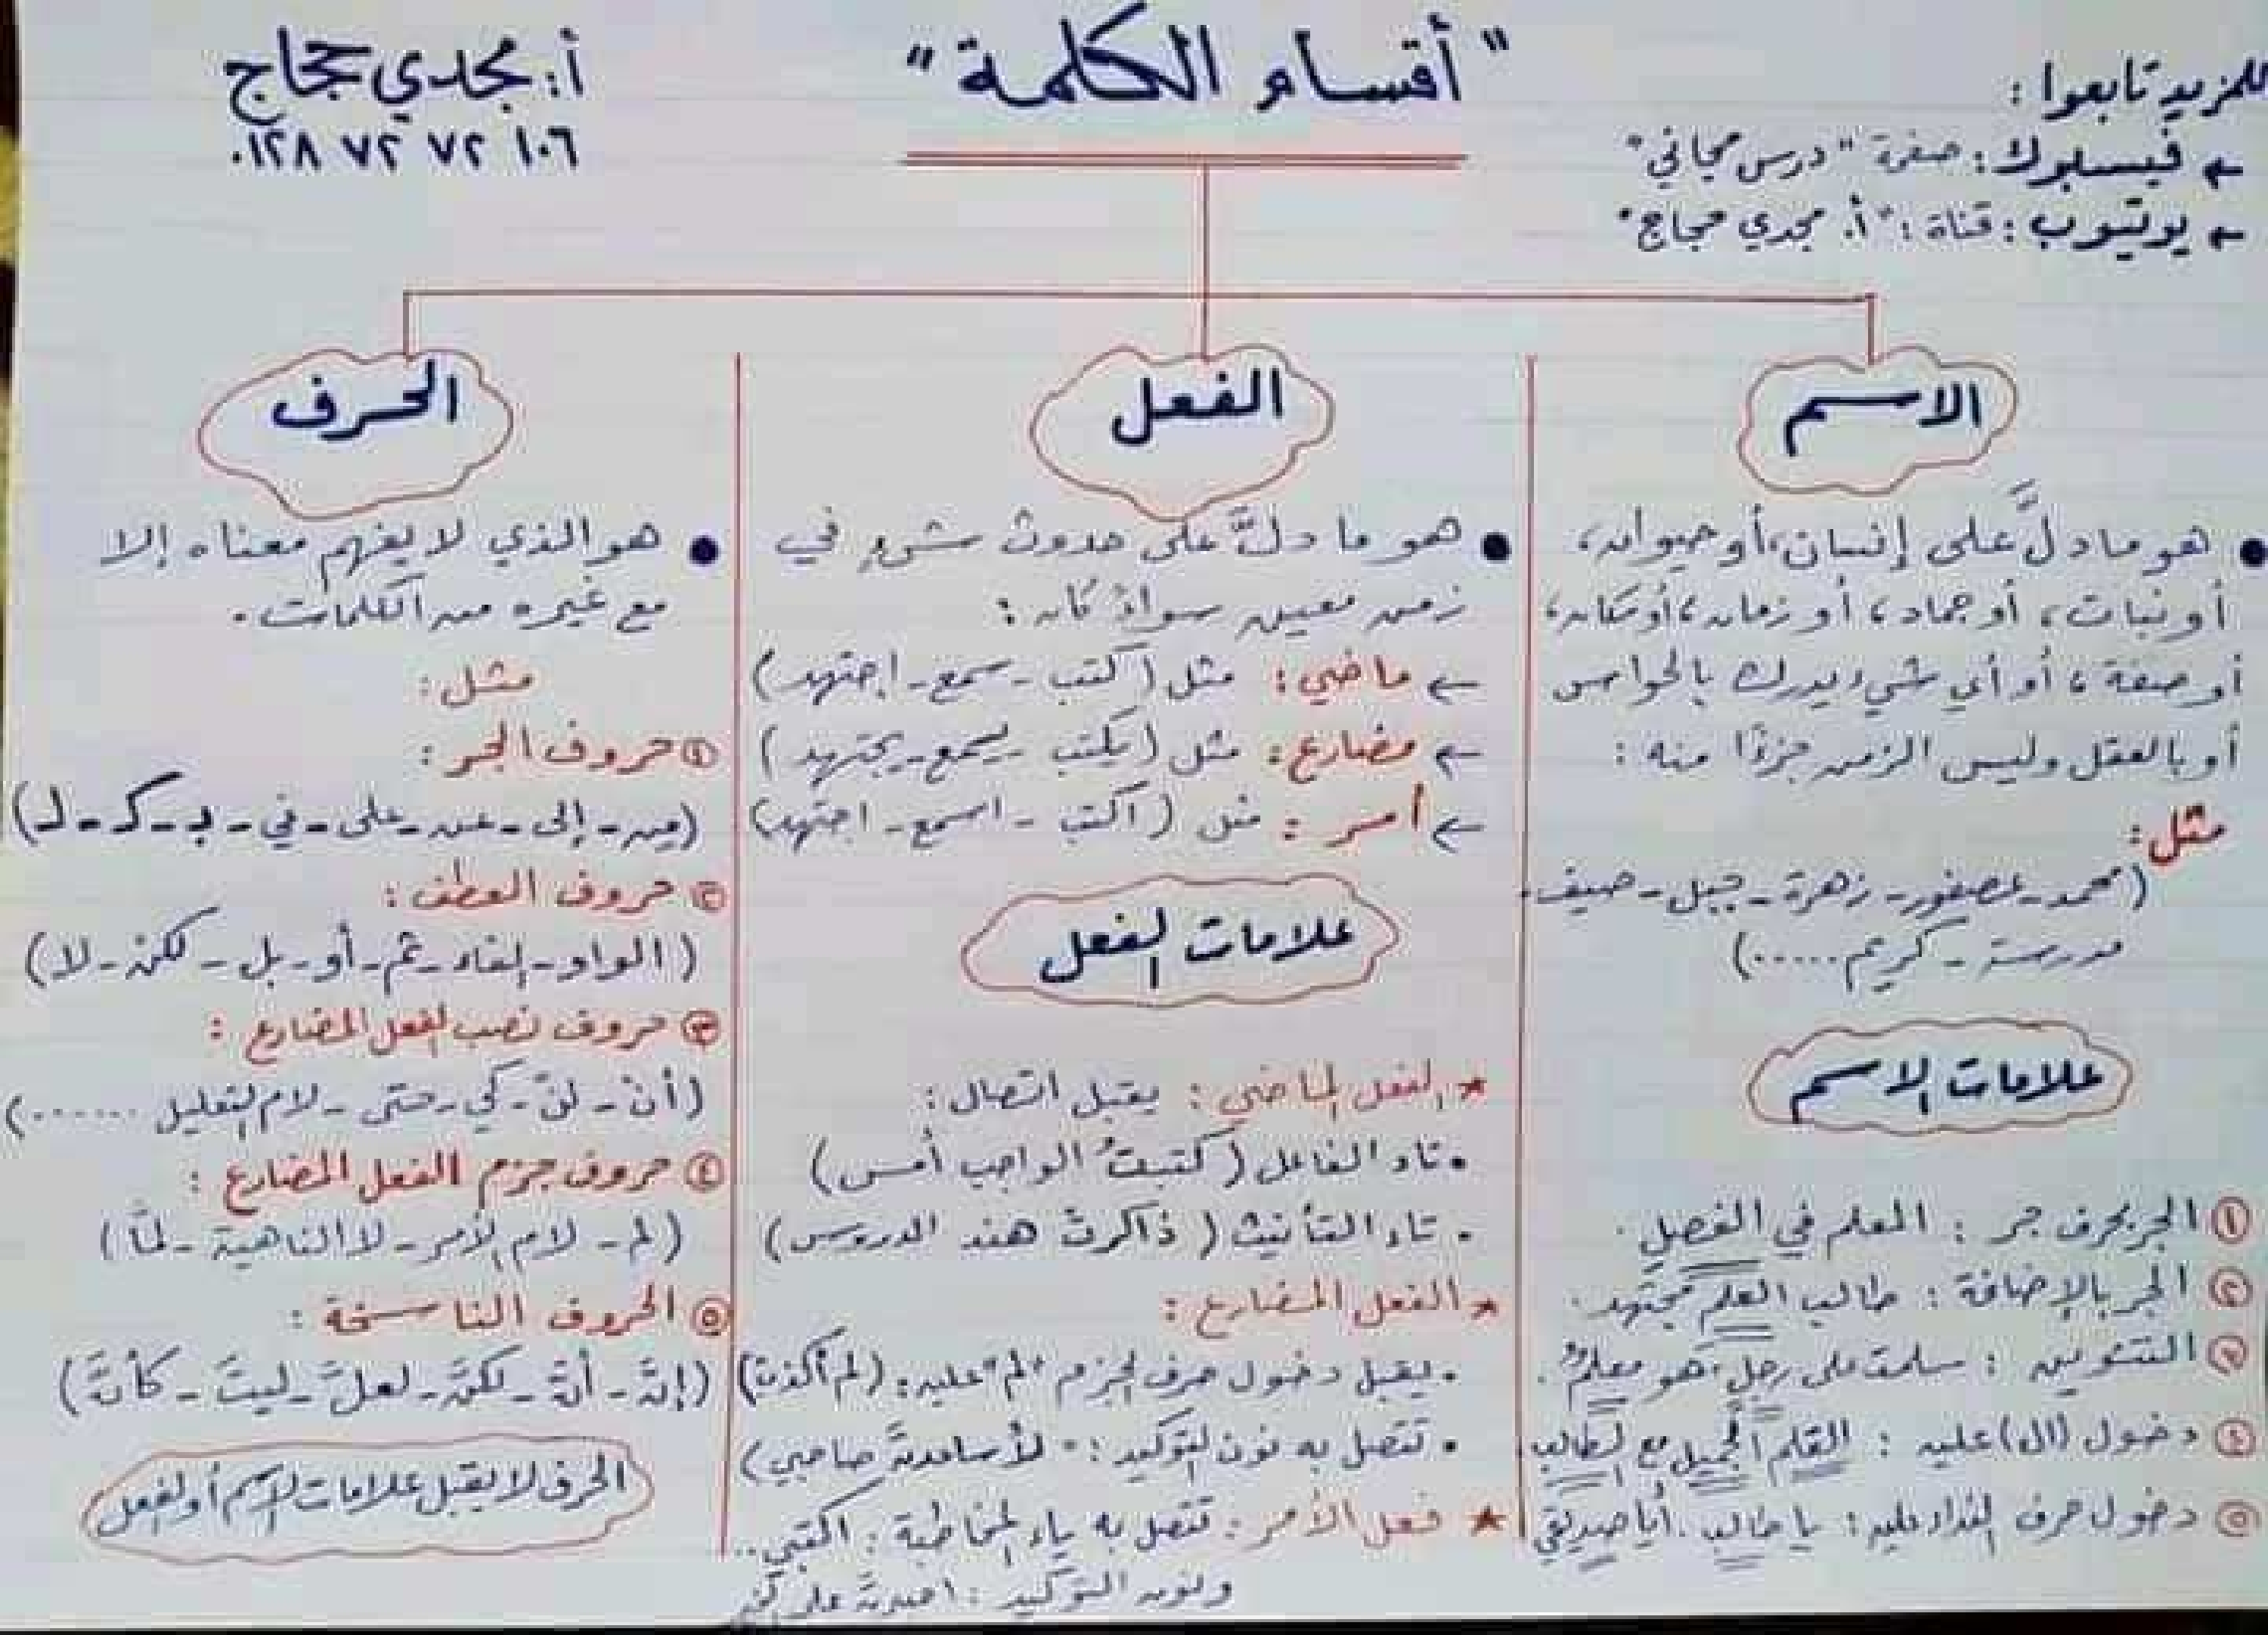 للمزيد تابعوا :
← فيسبوك : صفحة "درس مجاني"
← يوتيوب : قناة : "أ. مجدي حجاج"
"أقسام الكلمة"
أ: مجدي حجاج
٠١٢٨ ٧٢ ٧٢ ١٠٦
الاسم
• هو ما دلَّ على إنسان، أو حيوان،
أو نبات، أو جماد، أو زمان، أو مكان،
أو صفة، أو أي شيء يدرك بالحواس
أو بالعقل وليس الزمن جزءًا منه :
مثل :
(محمد - عصفور - زهرة - جبل - صيف -
مدرسة - كريم ......)
علامات الاسم
① الجر بحرف جر : المعلم في الفصلِ .
② الجر بالإضافة : طالب العلمِ مجتهد .
③ التنوين : سلمت على رجلٍ، هو معلمٌ .
④ دخول (ال) عليه : القلم الجميل مع الطالب
⑤ دخول حرف النداء عليه : يا طالب . أيا صديقي
الفعل
• هو ما دلَّ على حدوث شيءٍ في
زمن معين سواءً كان :
← ماضي : مثل (كتب - سمع - اجتهد)
← مضارع : مثل (يكتب - يسمع - يجتهد)
← أمر : مثل (اكتب - اسمع - اجتهد)
علامات الفعل
★ الفعل الماضي : يقبل اتصال :
• تاء الفاعل (كتبتُ الواجب أمس)
• تاء التأنيث (ذاكرتْ هند الدروس)
★ الفعل المضارع :
• يقبل دخول حرف الجزم "لم" عليه : (لم أكذبْ)
• تتصل به نون التوكيد : - لأساعدنَّ صاحبي)
★ فعل الأمر : تتصل به ياء المخاطبة : اكتبي ..
ونون التوكيد : احفظنَّ على
الحرف
• هو الذي لا يفهم معناه إلا
مع غيره من الكلمات .
مثل :
① حروف الجر :
(من - إلى - عن - على - في - بـ - كـ - لـ)
② حروف العطف :
(الواو - الفاء - ثم - أو - بل - لكنْ - لا)
③ حروف نصب الفعل المضارع :
(أنْ - لنْ - كي - حتى - لام التعليل ......)
④ حروف جزم الفعل المضارع :
(لم - لام الأمر - لا الناهية - لمَّا)
⑤ الحروف الناسخة :
(إنَّ - أنَّ - لكنَّ - لعلَّ - ليتَ - كأنَّ)
الحرف لا يقبل علامات الاسم أو الفعل